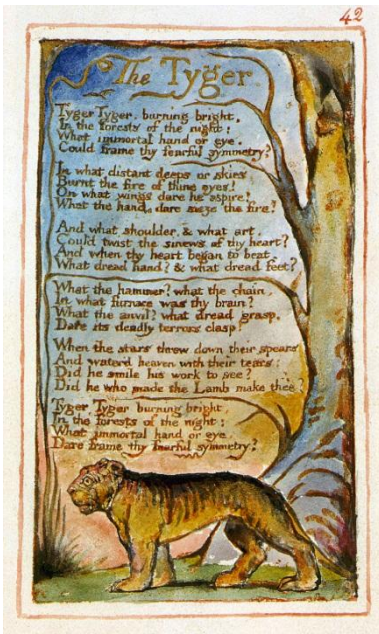 42
The Tyger
Tyger Tyger, burning bright,
In the forests of the night:
What immortal hand or eye,
Could frame thy fearful symmetry?
In what distant deeps or skies,
Burnt the fire of thine eyes!
On what wings dare he aspire!
What the hand, dare sieze the fire?
And what shoulder, & what art,
Could twist the sinews of thy heart?
And when thy heart began to beat,
What dread hand? & what dread feet?
What the hammer? what the chain,
In what furnace was thy brain?
What the anvil? what dread grasp,
Dare its deadly terrors clasp!
When the stars threw down their spears
And water'd heaven with their tears:
Did he smile his work to see?
Did he who made the Lamb make thee?
Tyger Tyger burning bright,
In the forests of the night:
What immortal hand or eye,
Dare frame thy fearful symmetry?